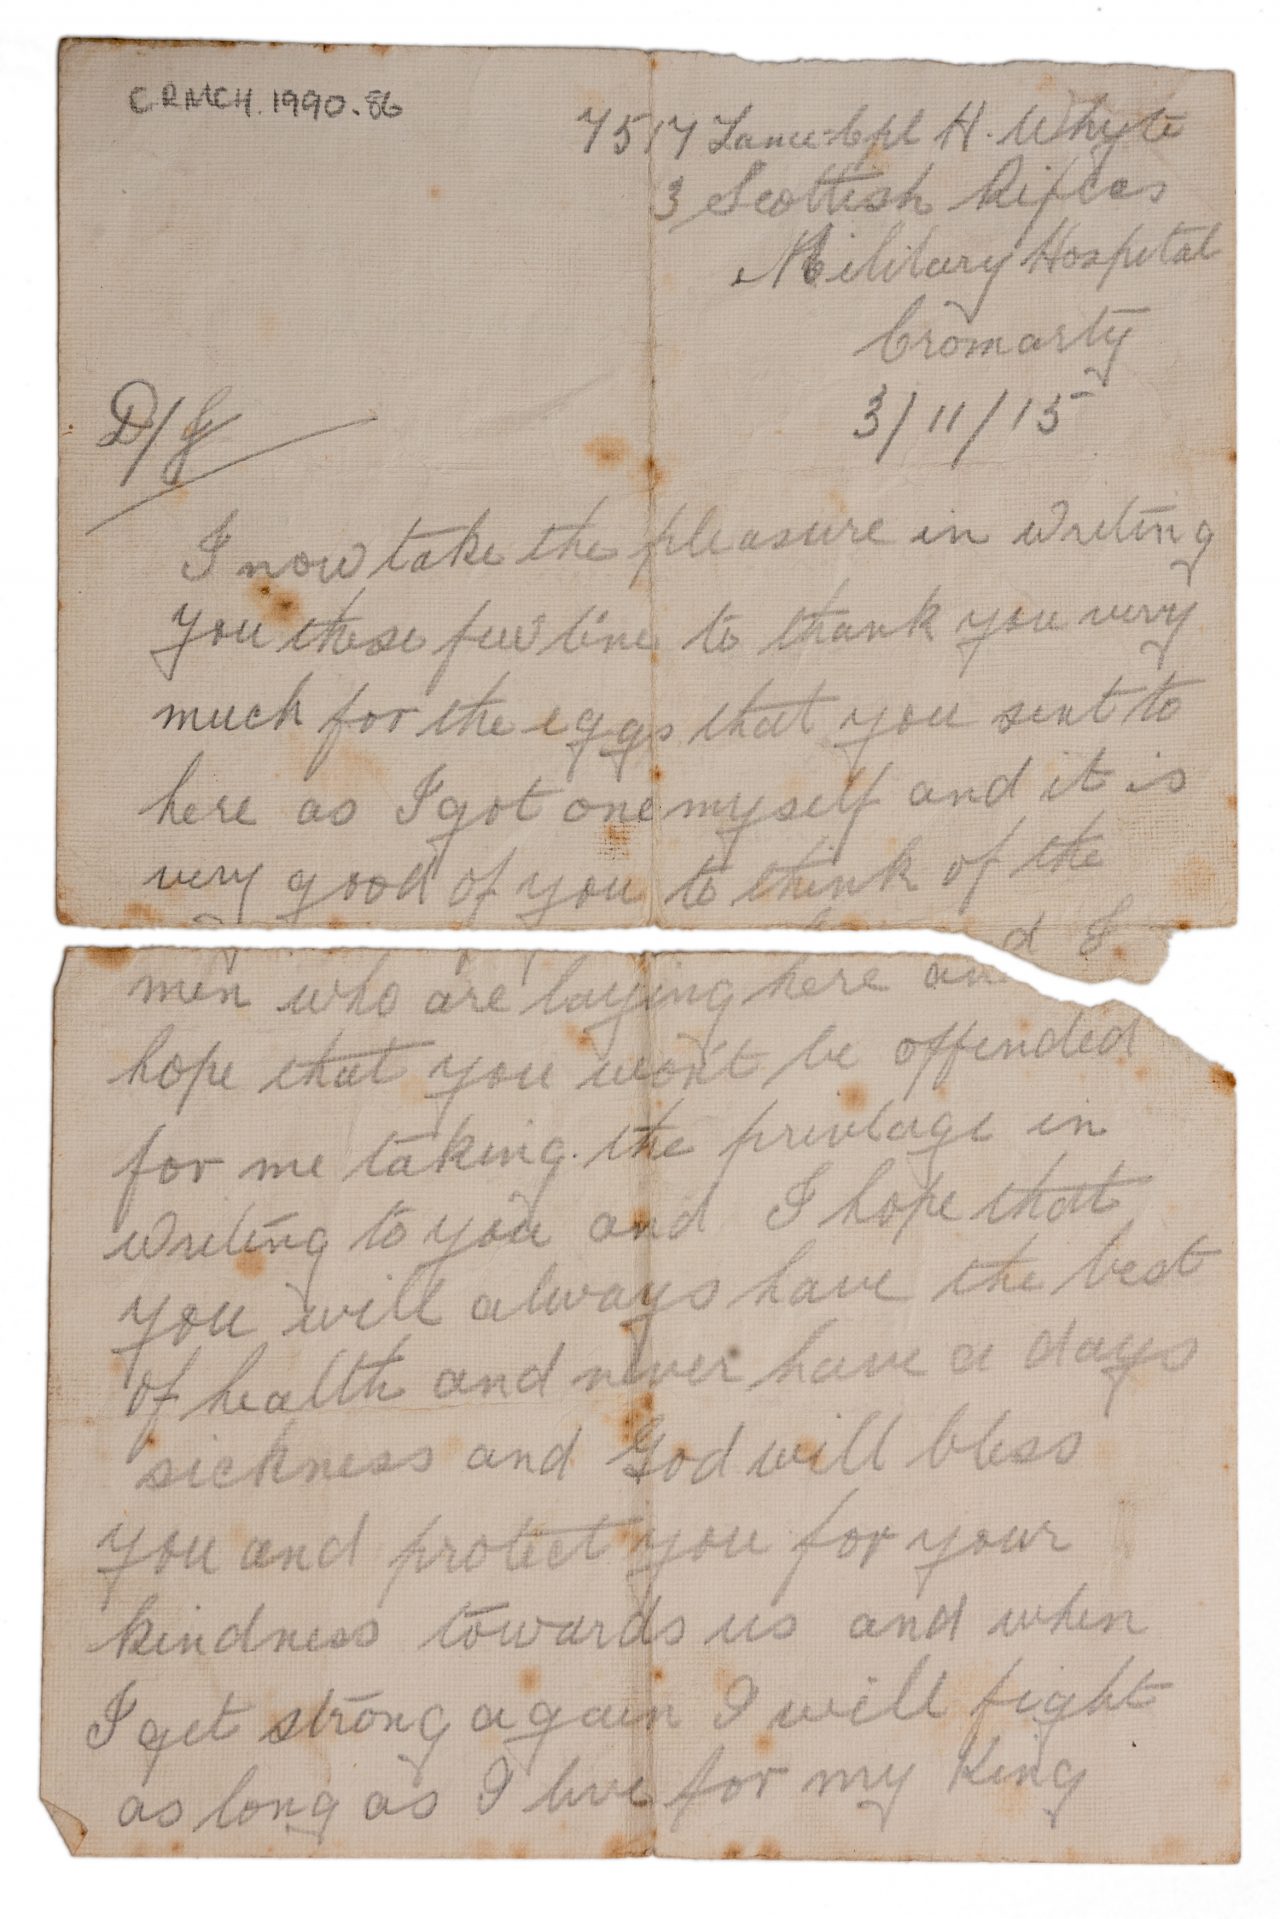 CRMCH.1990.86
7517 Lance Cpl H. Whyte
3 Scottish Rifles
Military Hospital
Cromarty
3/11/15
D/G
I now take the pleasure in writing
you these few line to thank you very
much for the eggs that you sent to
here as I got one myself and it is
very good of you to think of the
men who are laying here and I
hope that you won't be offended
for me taking the privlage in
writing to you and I hope that
you will always have the best
of health and never have a days
sickness and God will bless
you and protect you for your
kindness towards us and when
I get strong again I will fight
as long as I live for my King